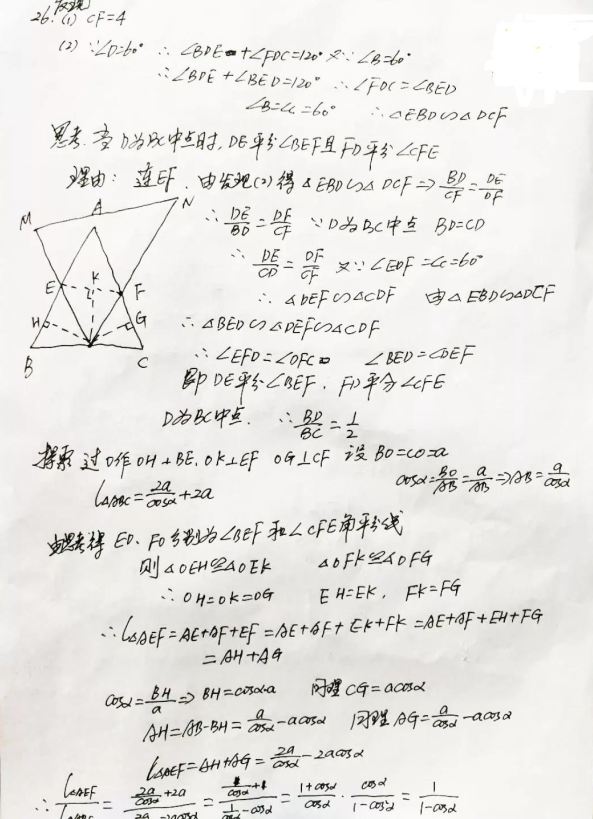 26. 发现 (1) CF=4
(2) ∵∠D=60° ∴ ∠BDE+∠FDC=120° 又∵∠B=60°
∴∠BDE+∠BED=120° ∴∠FDC=∠BED
∠B=∠C=60° ∴△EBD∽△DCF
思考. 当D为BC中点时, DE平分∠BEF且FD平分∠CFE
理由: 连EF. 由发现(2)得△EBD∽△DCF⇒BD/CF=DE/DF
∴ DE/BD=DF/CF ∵D为BC中点 BD=CD
∴ DE/CD=DF/CF 又∵∠EDF=∠C=60°
∴ △DEF∽△CDF 由△EBD∽△DCF
∴△BED∽△DEF∽△CDF
∴∠EFD=∠DFC ∠BED=∠DEF
即DE平分∠BEF. FD平分∠CFE
D为BC中点. ∴BD/BC=1/2
M A N
E K F
H G
B C
探索 过O作OH⊥BE, OK⊥EF OG⊥CF 设BO=CO=a
cosα=BO/AB=a/AB⇒AB=a/cosα
L△ABC=2a/cosα+2a
由思考得EO、FO分别为∠BEF和∠CFE角平分线
则△OEH≌△OEK △OFK≌△OFG
∴OH=OK=OG EH=EK, FK=FG
∴L△AEF=AE+AF+EF=AE+AF+EK+FK=AE+AF+EH+FG
=AH+AG
cosα=BH/a⇒BH=cosα·a 同理CG=acosα
AH=AB-BH=a/cosα-acosα 同理AG=a/cosα-acosα
L△AEF=AH+AG=2a/cosα-2acosα
∴ L△AEF/L△ABC=(2a/cosα+2a)/(2a/cosα-2acosα)=(1/cosα+1)/(1/cosα-cosα)=(1+cosα)/cosα·cosα/(1-cos²α)=1/(1-cosα)